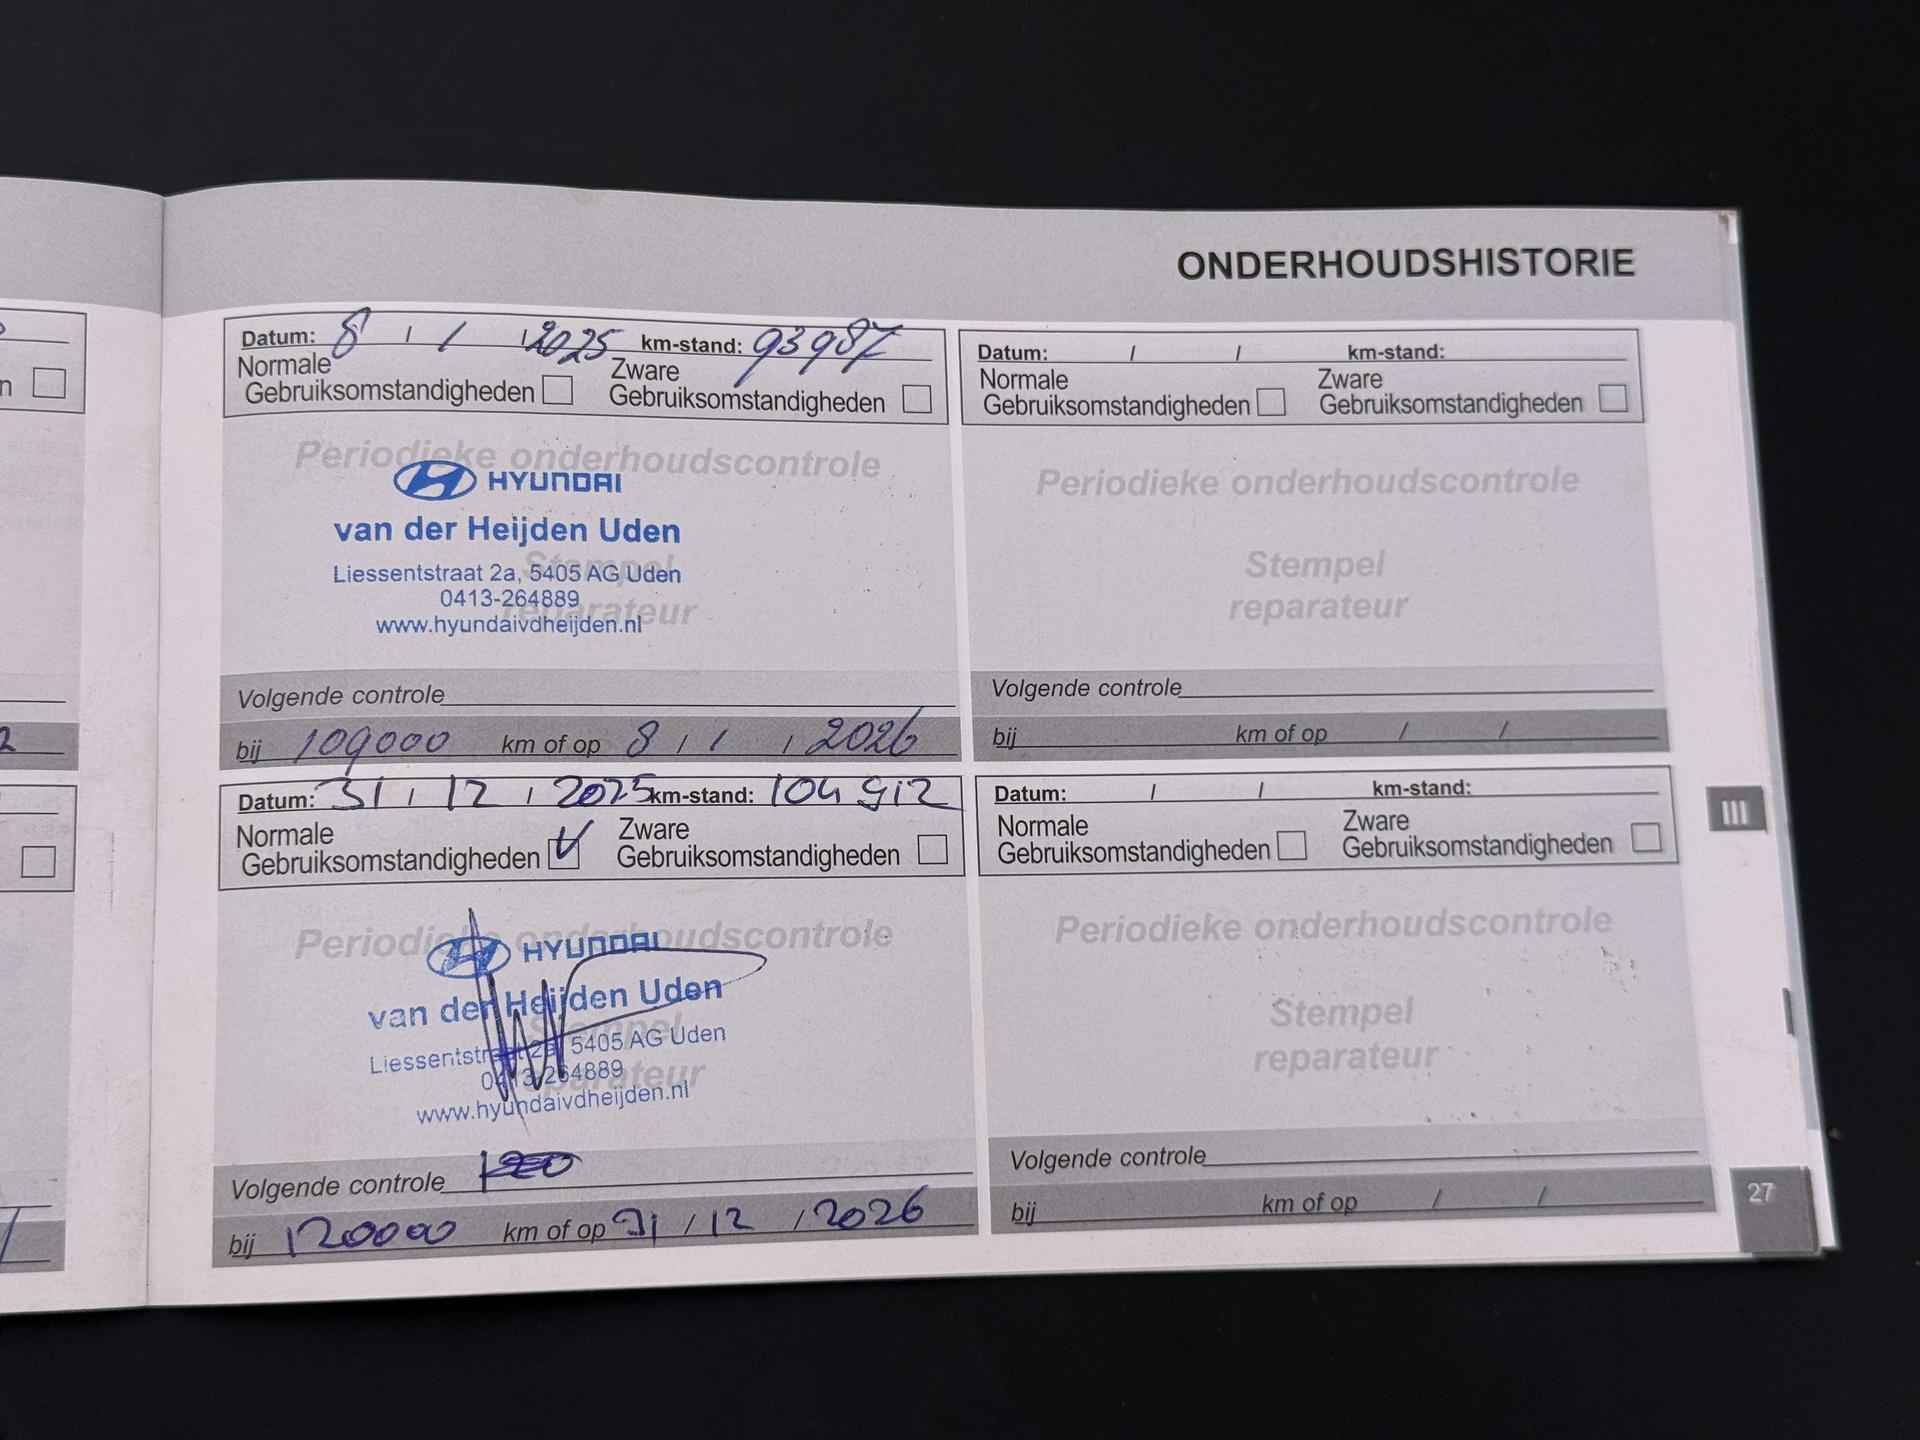 ONDERHOUDSHISTORIE
Datum: 8 / 1 / 2025 km-stand: 93987
Normale
Gebruiksomstandigheden
Zware
Gebruiksomstandigheden
Periodieke onderhoudscontrole
HYUNDAI
van der Heijden Uden
Stempel
Liessentstraat 2a, 5405 AG Uden
0413-264889
reparateur
www.hyundaivdheijden.nl
Volgende controle
bij 109000 km of op 8 / 1 / 2026
Datum: 31 / 12 / 2025 km-stand: 104912
Normale
Gebruiksomstandigheden
Zware
Gebruiksomstandigheden
Periodieke onderhoudscontrole
HYUNDAI
van der Heijden Uden
Stempel
Liessentstraat 2a, 5405 AG Uden
0413-264889
reparateur
www.hyundaivdheijden.nl
Volgende controle
bij 120000 km of op 31 / 12 / 2026
Datum: / / km-stand:
Normale
Gebruiksomstandigheden
Zware
Gebruiksomstandigheden
Periodieke onderhoudscontrole
Stempel
reparateur
Volgende controle
bij km of op / /
Datum: / / km-stand:
Normale
Gebruiksomstandigheden
Zware
Gebruiksomstandigheden
Periodieke onderhoudscontrole
Stempel
reparateur
Volgende controle
bij km of op / /
III
27